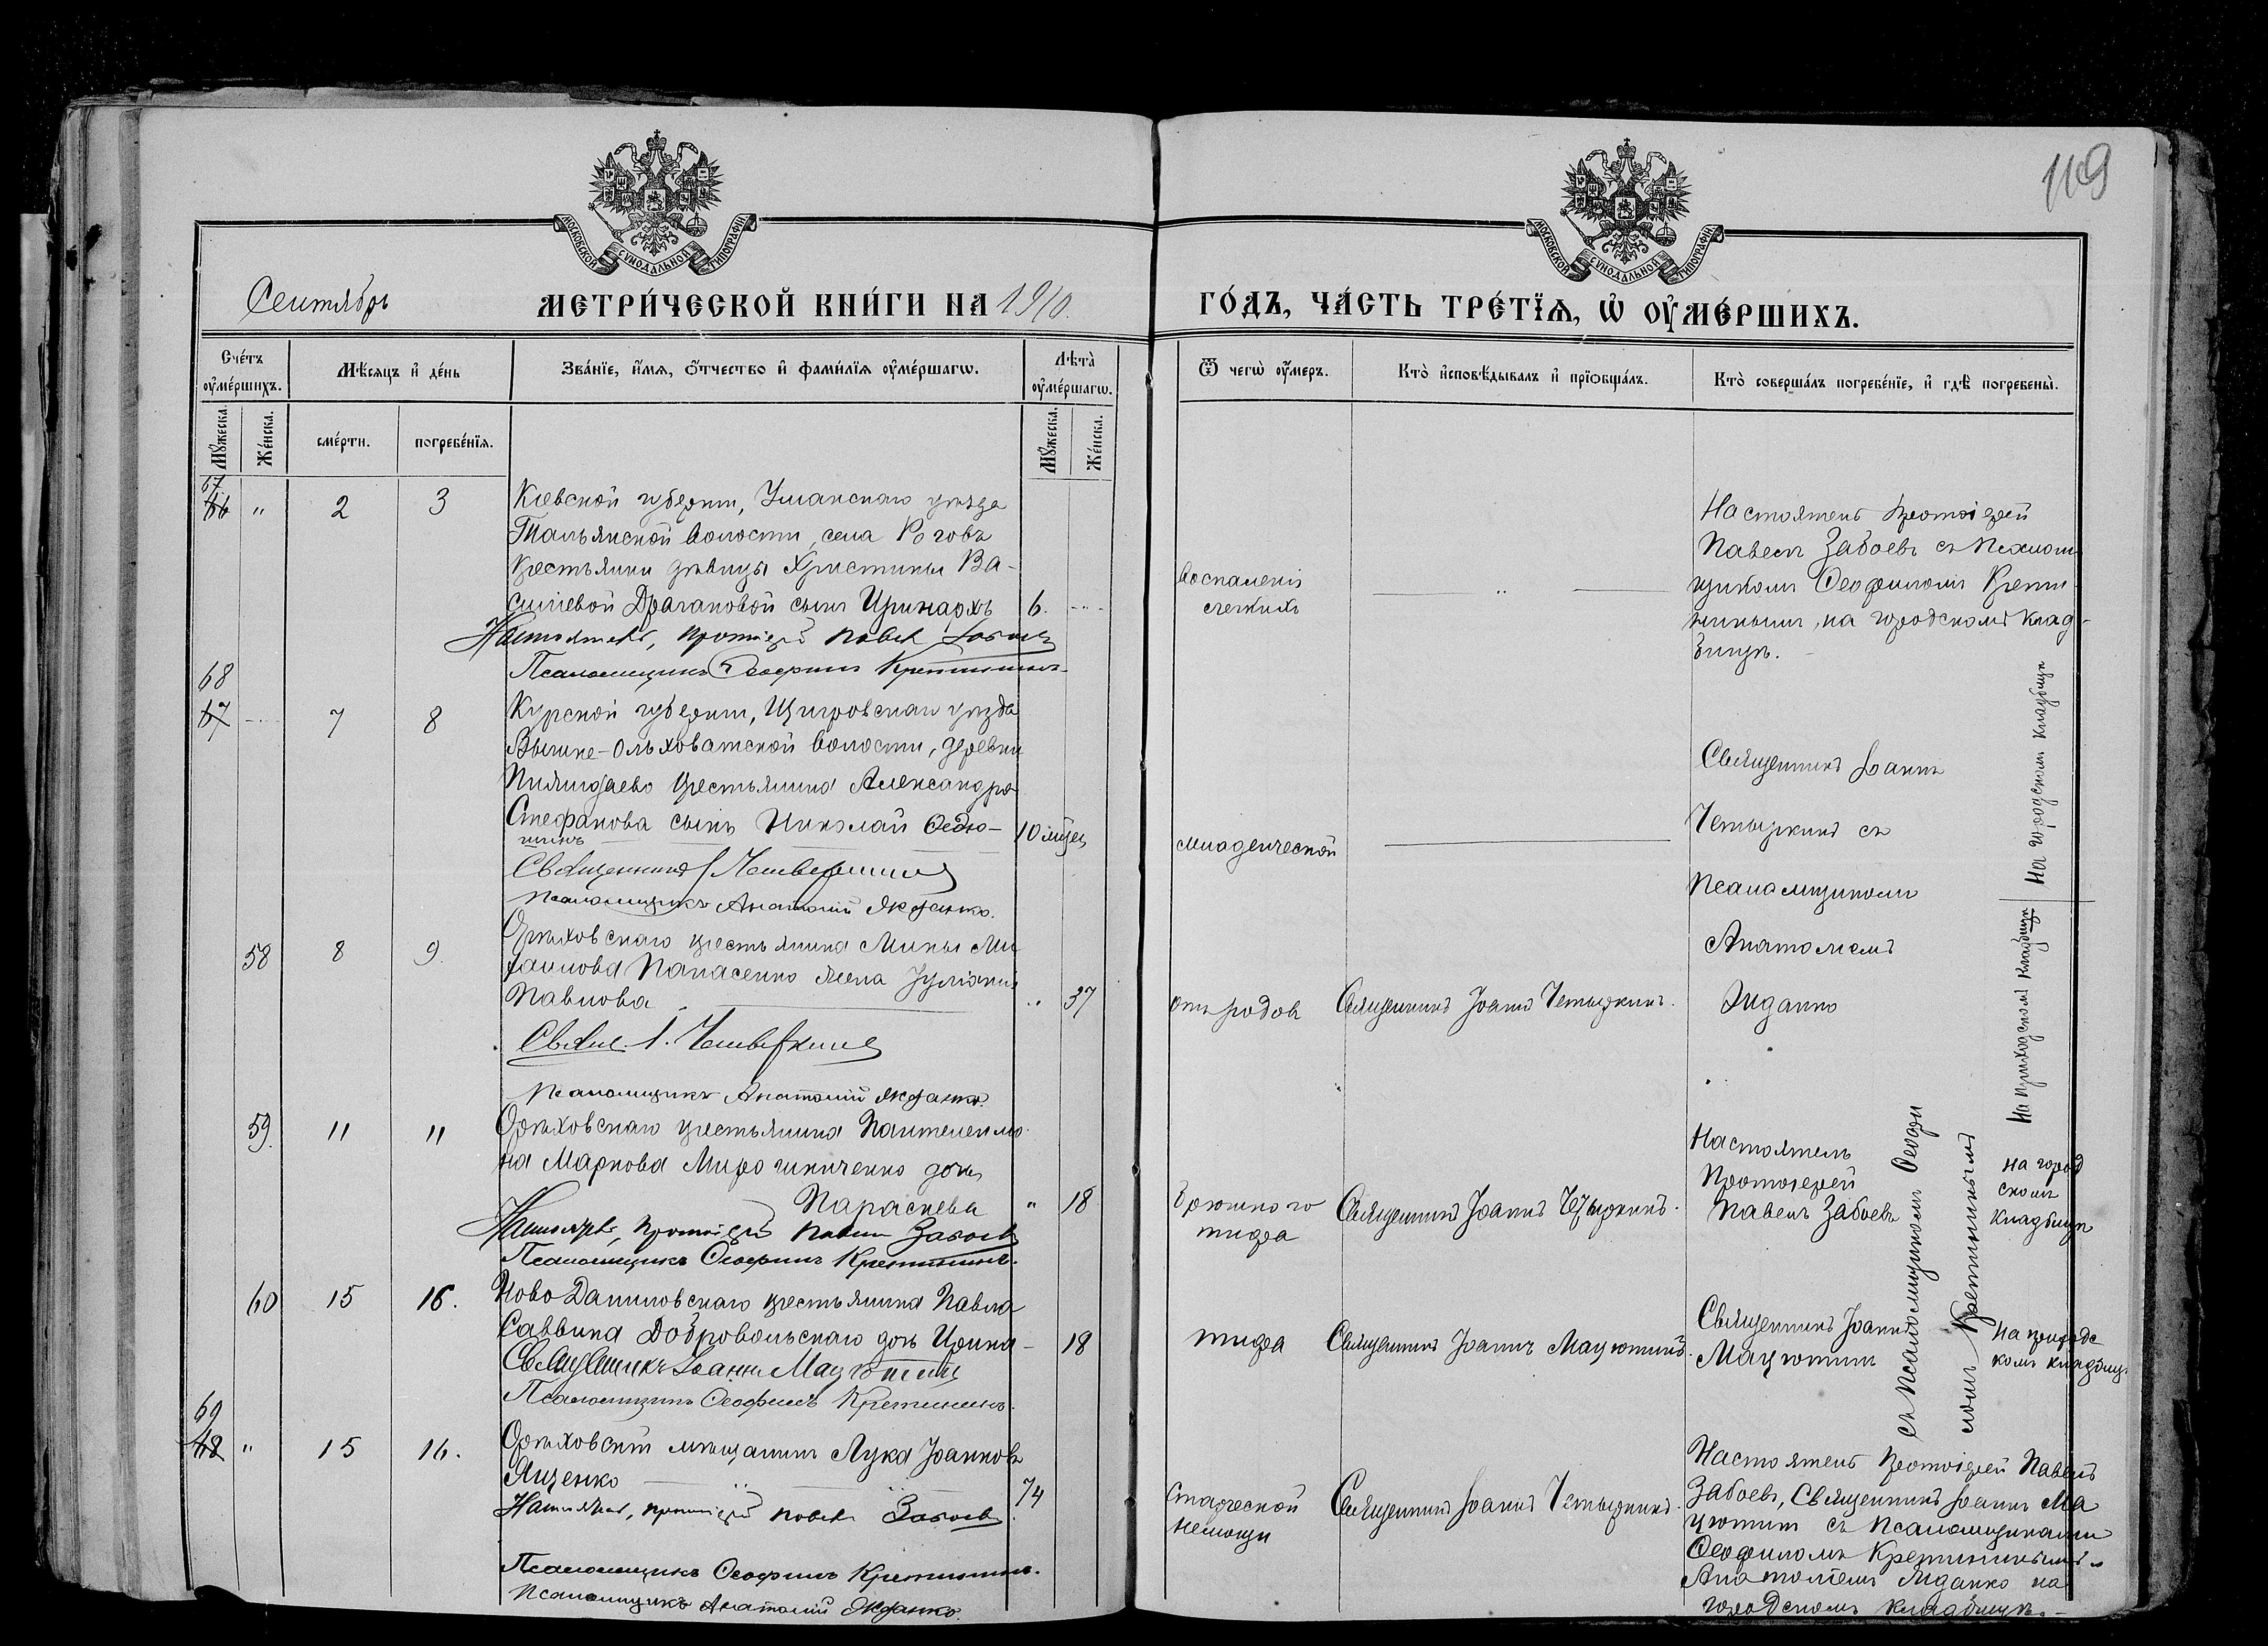 119
МОСКОВСКОЙ СѴНОДАЛЬНОЙ ТИПОГРАФІИ
МОСКОВСКОЙ СѴНОДАЛЬНОЙ ТИПОГРАФІИ
Сентябрь МЕТРИ́ЧЕСКОЙ КНИ́ГИ НА 1910.
ГО́ДЪ, ЧА́СТЬ ТРЕ́ТЇѦ, Ѡ҆ ОУ҆МЕ́РШИХЪ.
Сче́тъ оу҆ме́ршихъ.
Мѣ́сѧцъ и҆ де́нь
Зва́нїе, и҆́мѧ, ѻ҆́тчество и҆ фами́лїѧ оу҆ме́ршагѡ.
Лѣта̀ оу҆ме́ршагѡ.
Ѿ чегѡ̀ оу҆́меръ.
Кто̀ и҆сповѣ́дывалъ и҆ прїѻбща́лъ.
Кто̀ соверша́лъ погребе́нїе, и҆ гдѣ̀ погребены̀.
Мꙋ́жеска.
Же́нска.
сме́рти.
погребе́нїѧ.
Мꙋ́жеска.
Же́нска.
67
66 " 2 3
Кіевской губерніи, Уманскаго уѣзда
Тальянской волости, села Роговъ
крестьянки дѣвицы Христины Ва-
силіевой Драгановой сынъ Иринархъ 6.
Настоятель, протоіерей Павелъ Забоевъ
Псаломщикъ Ѳеофилъ Крептининъ
воспаленія
легкихъ
Настоятель протоіерей
Павелъ Забоевъ съ псалом-
щикомъ Ѳеофиломъ Крепти-
нинымъ, на городскомъ клад-
бищѣ.
68
67 7 8
Курской губерніи, Щигровскаго уѣзда
Вышне-Ольховатской волости, деревни
крестьянина Александра
Стефанова сынъ Николай Ѳедю-
шинъ 10 мѣсец
Священникъ І. Четверкинъ
Псаломщикъ Анатолій Жданко.
младенческой
Священникъ Іоаннъ
Четыркинъ съ
псаломщикомъ
Анатоліемъ
Жданко
На городскомъ кладбищѣ
58 8 9.
Орѣховскаго крестьянина Мины Ми-
хаилова Панасенко жена Іуліанія
Павлова " 37
Свящ. І. Четверкинъ
Псаломщикъ Анатолій Жданко.
отъ родовъ
Священникъ Іоаннъ Четыркинъ.
На приходскомъ кладбищѣ
59. 11 11
Орѣховскаго крестьянина Пантелеимо-
на Маркова Мирошниченко дочь
Параскева " 18
Настоятель, протоіерей Павелъ Забоевъ
Псаломщикъ Ѳеофилъ Крептининъ.
брюшного
тифа
Священникъ Іоаннъ Четыркинъ.
Настоятель
протоіерей
Павелъ Забоевъ
съ псаломщикомъ Ѳеофи-
ломъ Крептининымъ
на город
скомъ
кладбищѣ
60 15 16.
Ново-Даниловскаго крестьянина Павла
Саввина Добровольскаго дочь Ирина - 18
Священникъ Іоаннъ Мацютинъ
Псаломщикъ Ѳеофилъ Крептининъ.
тифа
Священникъ Іоаннъ Мацютинъ.
Священникъ Іоаннъ
Мацютинъ
На приходс
комъ кладбищ.
69
68 " 15 16.
Орѣховскій мѣщанинъ Лука Іоанновъ
Яценко 74
Настоятель, протоіерей Павелъ Забоевъ.
Псаломщикъ Ѳеофилъ Крептининъ.
Псаломщикъ Анатолій Жданко.
старческой
немощи
Священникъ Іоаннъ Четыркинъ.
Настоятель протоіерей Павелъ
Забоевъ, священникъ Іоаннъ Ма
цютинъ съ псаломщиками
Ѳеофиломъ Крептининымъ и
Анатоліемъ Жданко на
городскомъ кладбищѣ.-